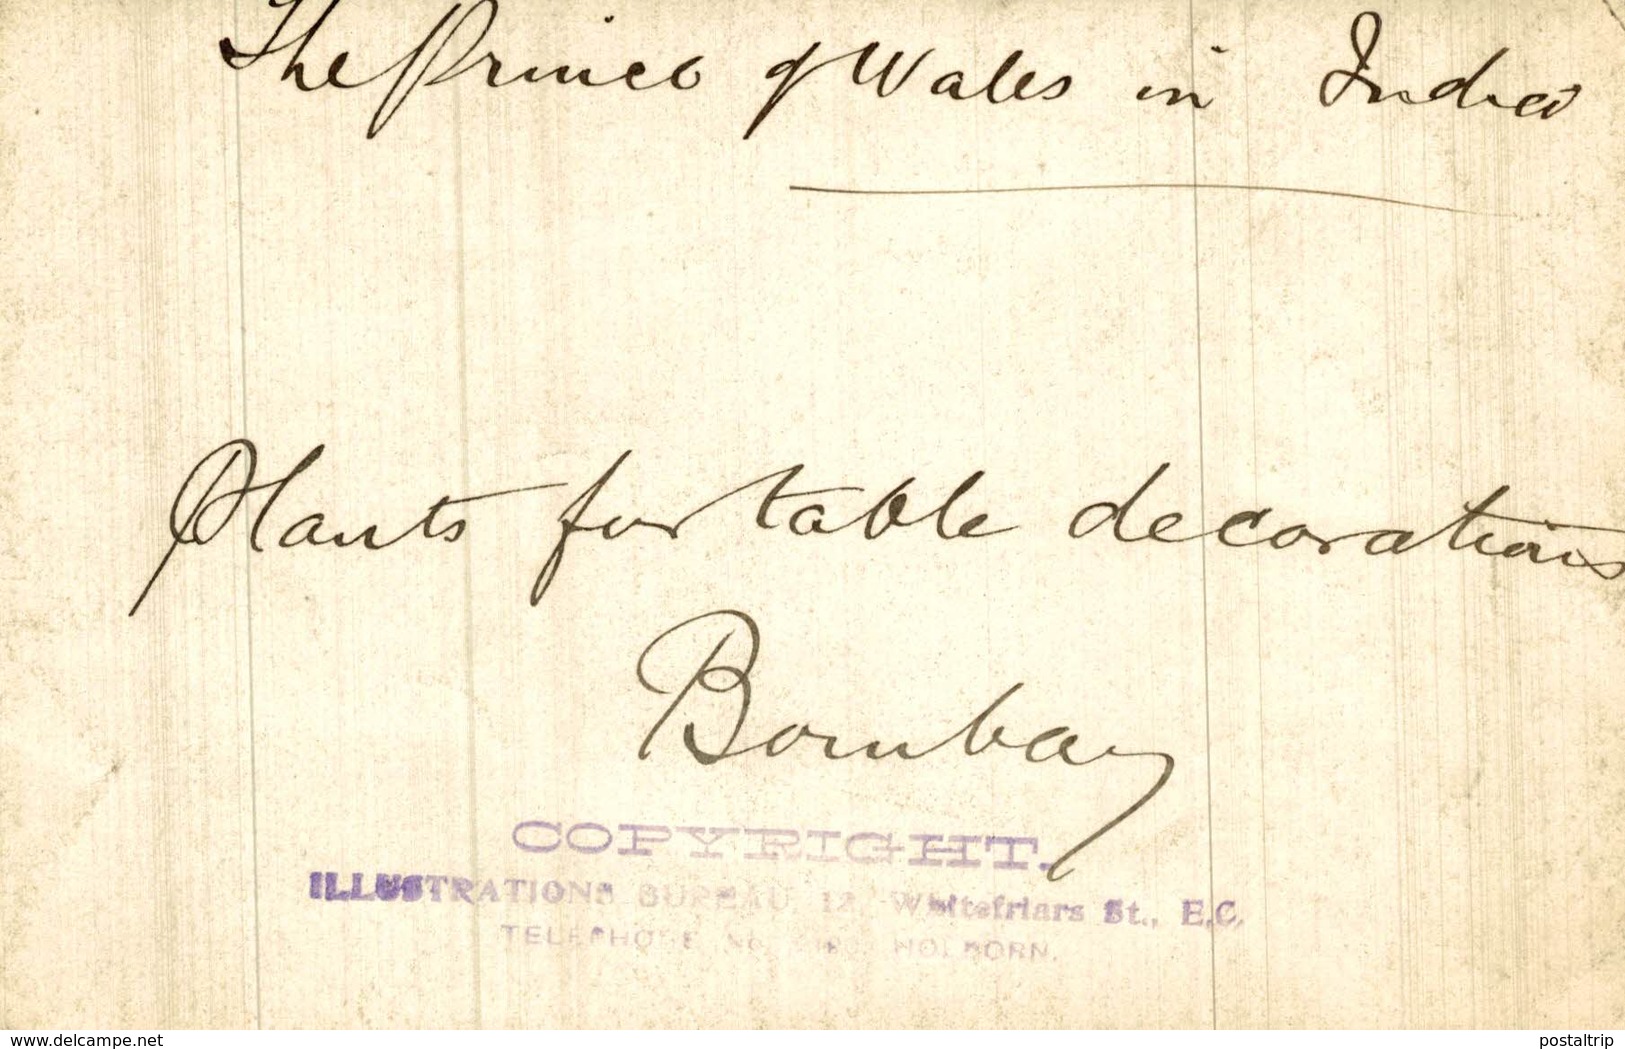 The Prince of Wales in India
Plants for table decorations
Bombay
COPYRIGHT.
ILLUSTRATIONS BUREAU, 12, Whitefriars St., E.C.
TELEPHONE No. HOLBORN.
www.delcampe.net
postaltrip